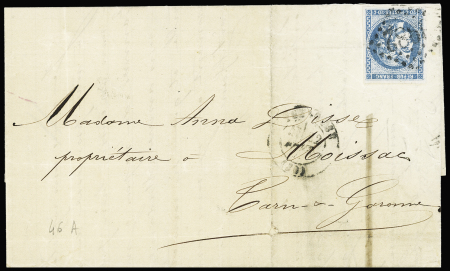 REPUB. FRANC.
Madame Anna Disse
propriétaire à Moissac
Tarn-&-Garonne
46 A